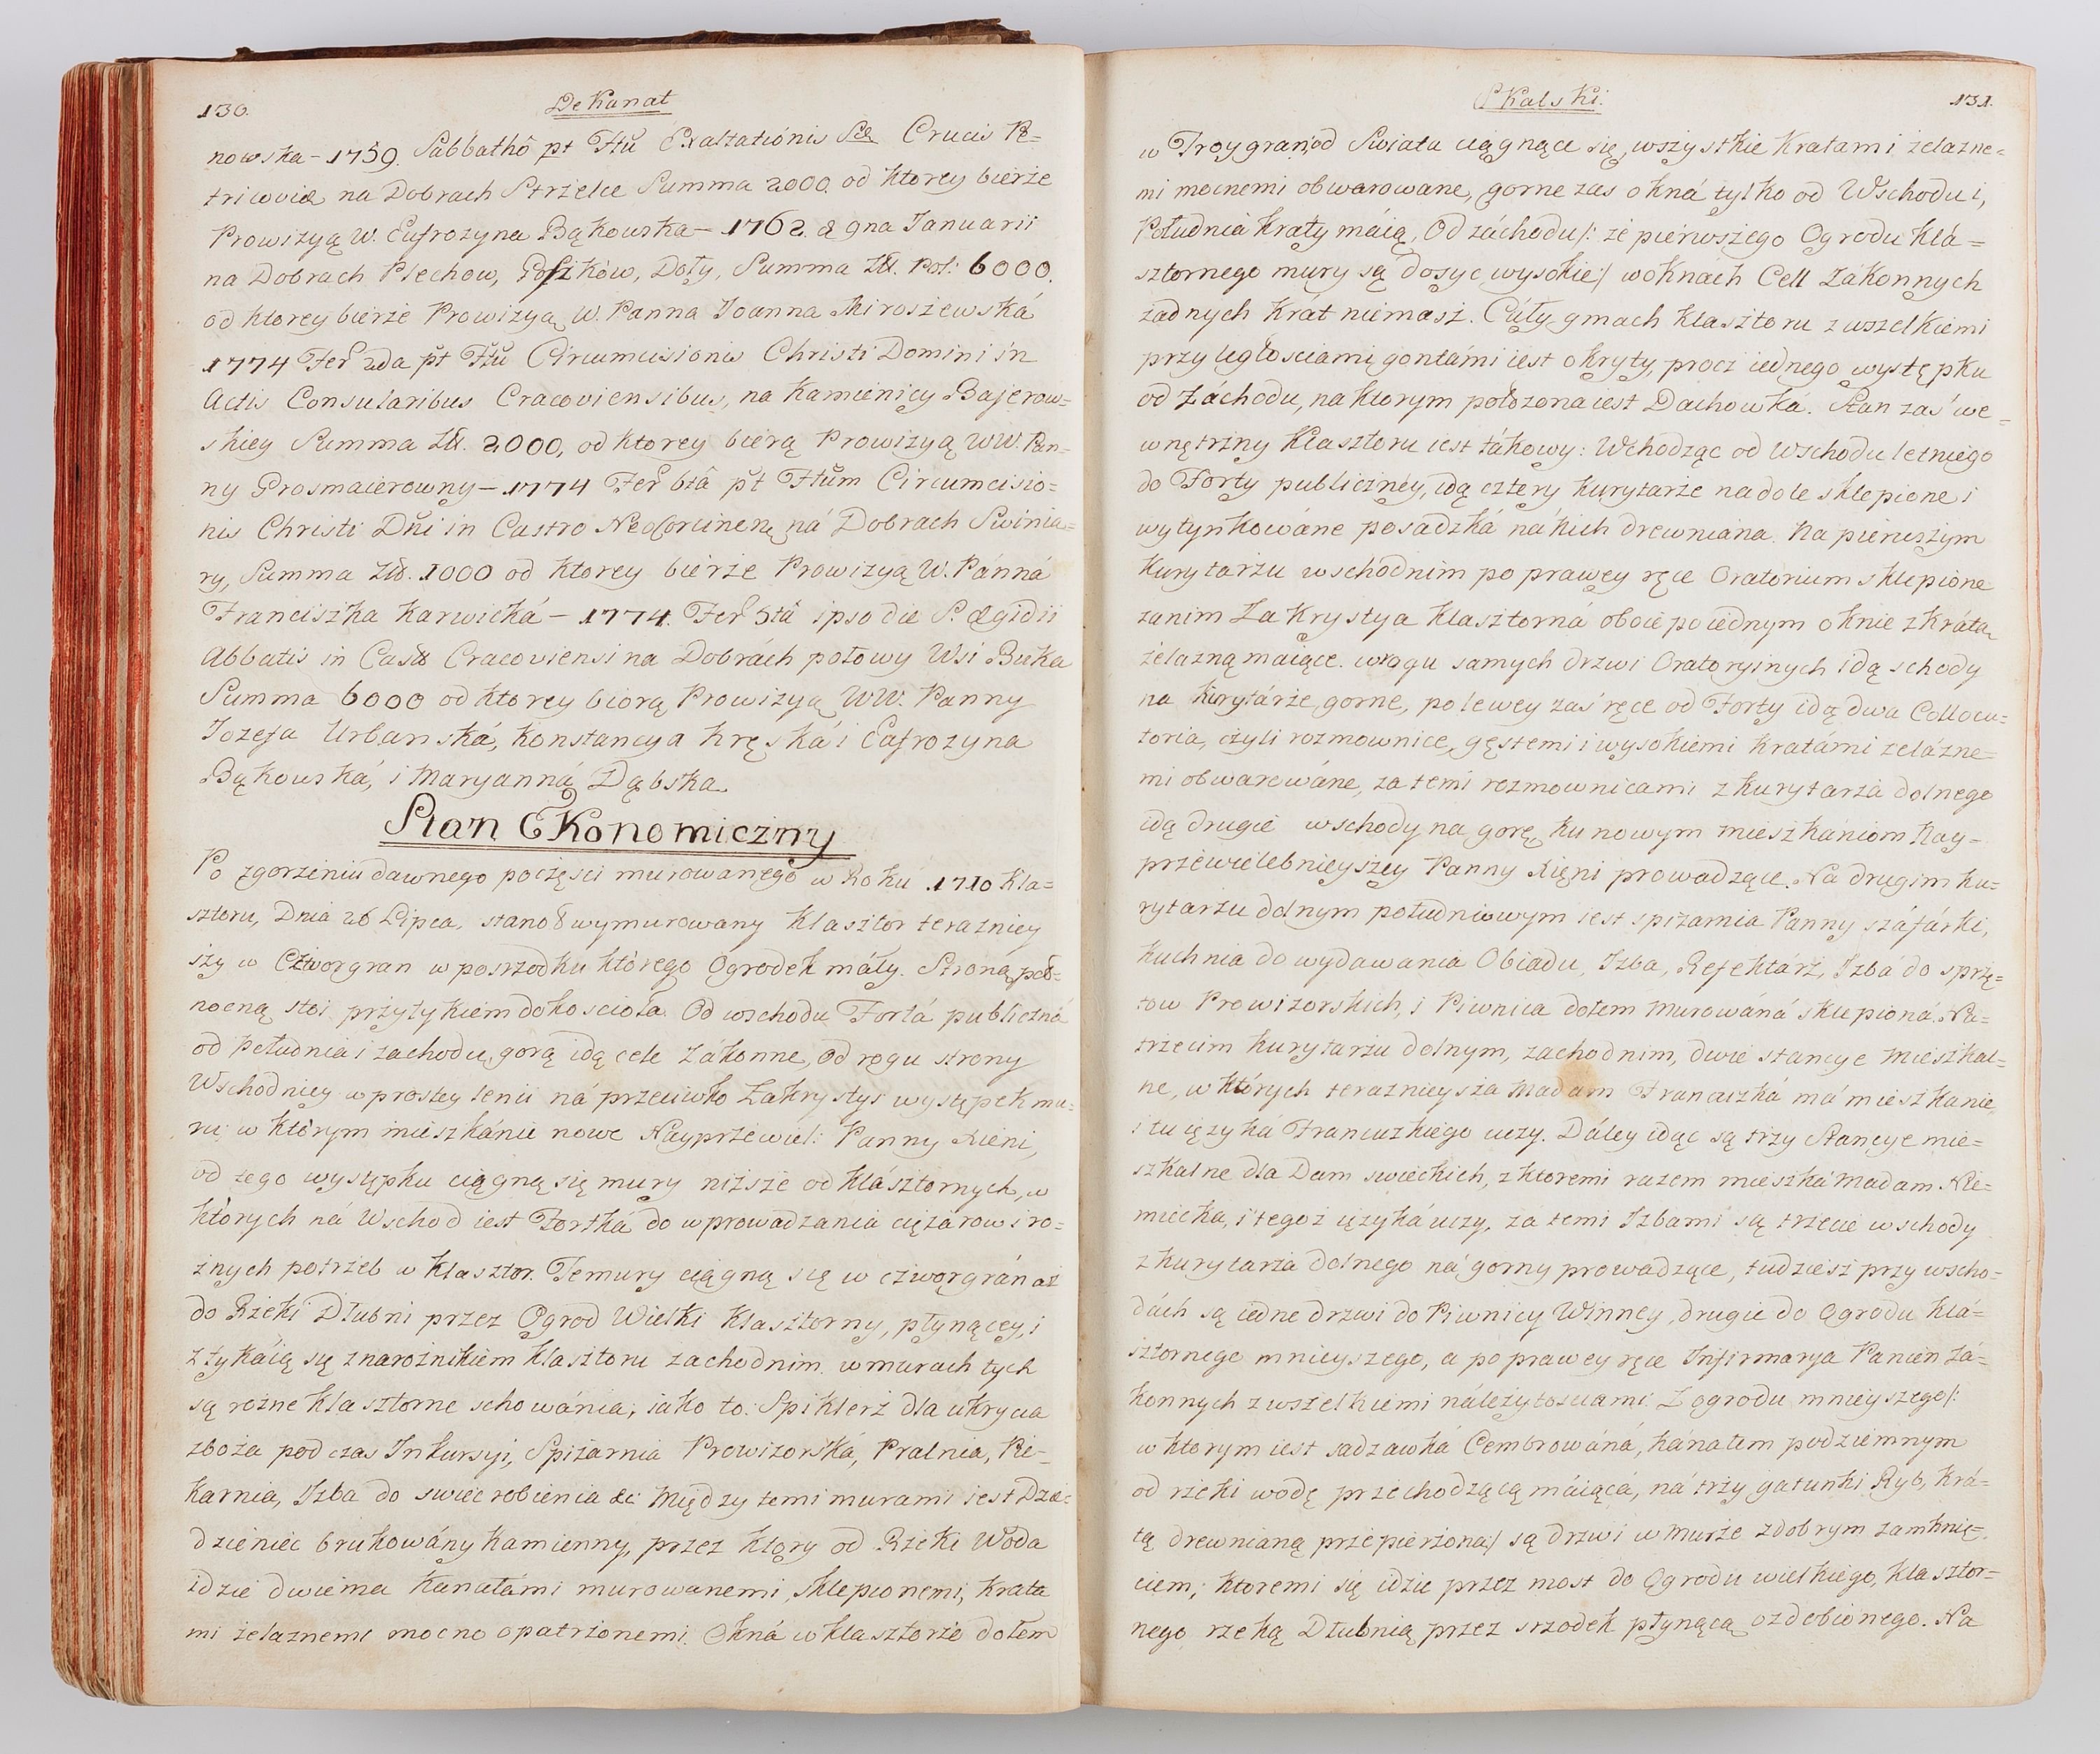 130.
DeKanat
nowska – 1759. Sabbathô pt Ftũ Exaltationis Sć Crucis Pe=
tricoviæ na Dobrach Strzelce Summa 2000. od ktorey bierze
Prowizyą W. Eufrozyna Bąkowska – 1762. d 9na Januarii
na Dobrach Plechow, Doły, Summa Zł. Pol: 6000.
od ktorey bierze Prowizyą W. Panna Joanna Miroszewská
1774 Fer 2da p̃t Ftũ Circumcisionis Christi Domini in
Actis Consularibus Cracoviensibus, na Kamienicy Bajerow=
skiey Summa Zł. 2000, od ktorey bierą Prowizyą WW. Pan=
ny Grosmaierowny – 1774 Fer 6tâ p̃t Ftũm Circumcisio=
nis Christi Dñi in Castro ná Dobrach Swinia=
ry, Summa Zł. 1000 od ktorey bierze Prowizyą W. Pánná
Franciszka Karwická – 1774. Fer 5tâ ipso die S. Ægidii
Abbatis in Cracoviensi na Dobrách połowy Wsi Buka
Summa 6000 od ktorey biorą Prowizyą WW. Panny
Jozefa Urbanská, Konstancya Kręská i Eufrozyna
Bąkouská, i Maryanná Dąbska.
Stan EKonomiczny
Po zgorzeniu dawnego poczęsci murowanego w Roku 1710 Kla=
sztoru, Dnia 26 Lipca, stanoł wymurowany Klasztor terazniey
szy w Cztworgran w posrzodku którego Ogrodek máły. Stroną poł=
nocną stoi przytykiem do kosciola. Od wschodu Fortá publiczná
od Południa i zachodu, gorą idą cele Zákonne, Od rogu strony
Wschodniey w prostey lenii ná przeciwko Zakrystyi występek mu=
ru, w którym mieszkánie nowe Nayprzewiel: Panny Xieni,
od tego występku ciągną się mury niższe od klásztornych, w
których ná Wschod iest Fortká do wprowadzania ciężarow i ro=
znych potrzeb w Klasztor. Te mury ciągną się w cztworgrán aż
do Rzeki Dłubni przez Ogrod Wielki Klasztorny, płynącey, i
ztykáią się z narożnikiem Klasztoru zachodnim. w murach tych
są rożne klasztorne schowánia, iako to: Spiklerz dla ukrycia
zboża pod czas Inkursyi, Spiżarnia Prowizorská, Pralnia, Pie=
karnia, Izba do swiec robienia &c Między temi murami iest Dzie=
dzieniec brukowány kamienny, przez który od Rzeki Woda
idzie dwiema Kanałámi murowanemi, sklepionemi, krata
mi żelaznemi mocno opatrzonemi. Okná w klasztorze dołem
SKalski.
131.
w Troygran, od Swiata ciągnące się, wszystkie Kratami żelazne=
mi mocnemi obwarowane, gorne zas okná tylko od Wschodu i,
Południá kraty máią, Od záchodu /: że pierwszego Ogrodu Klá=
sztornego mury są dosyc wysokie:/ w oknach Cell Zákonnych
żadnych Krát niemasz. Cáły gmach Klasztoru z wszelkiemi
przyległosciami gontámi iest okryty, procz iednego występku
od Záchodu, na ktorym położona iest Dachowká. Stan zaś we=
wnętrzny Klasztoru iest tákowy: Wchodząc od Wschodu letniego
do Forty publiczney, idą cztery kurytarze na dole sklepione i
wytynkowáne posadzká ná nich drewniana. Na pierwszym
Kurytarzu wschodnim po prawey ręce Oratorium sklepione
zanim Zakrystya Klasztorná oboie po iednym oknie z krátą
żelazną maiące. w rogu samych drzwi Oratoryinych idą schody
na kurytárze gorne, po lewey zaś ręce od Forty idą dwa Collocu=
toria, czyli rozmownice, gęstemi i wysokiemi kratámi zelázne=
mi obwarowáne, za temi rozmownicami z kurytarza dolnego
idą drugie wschody na gorę ku nowym mieszkániom Nay=
przewielebnieyszey Panny Xięni prowadzące. Na drugim ku=
rytarzu dolnym południowym iest spiżarnia Panny száfárki,
Kuchnia do wydawania Obiadu, Izba, Refektárz, Izbá do sprzę=
tow Prowizorskich, i Piwnica dołem murowáná sklepioná. Na
trzecim kurytarzu dolnym, zachodnim, dwie stancye mieszkal=
ne, w których teraznieysza Madam Francuzká má mieszkanie,
i tu ięzyká Francuzkiego uczy. Dáley idąc są trzy Stancye mie=
szkalne dla Dam swieckich, z ktoremi razem mieszká Madam Nie=
miecka, i tegoż ięzyká uczy, za temi Izbami są trzecie wschody
z kurytarza dolnego ná gorny prowadzące, tudziesz przy wscho=
dách są iedne drzwi do Piwnicy Winney, drugie do Ogrodu Klá=
sztornego mnieyszego, a po prawey ręce Infirmarya Panien Zá=
konnych z wszelkiemi náleżytosciami. Z ogrodu mnieyszego /:
w ktorym iest sadzawká Cembrowáná, kánałem podziemnym
od rzeki wodę przechodzącą máiącá, ná trzy gatunki Ryb, krá=
tą drewnianą przepierzona:/ są drzwi w murze z dobrym zamknię=
ciem, ktoremi się idzie przez most do Ogrodu wielkiego, Klasztor=
nego rzeką Dłubnią przez srzodek płynącą ozdobionego. Na